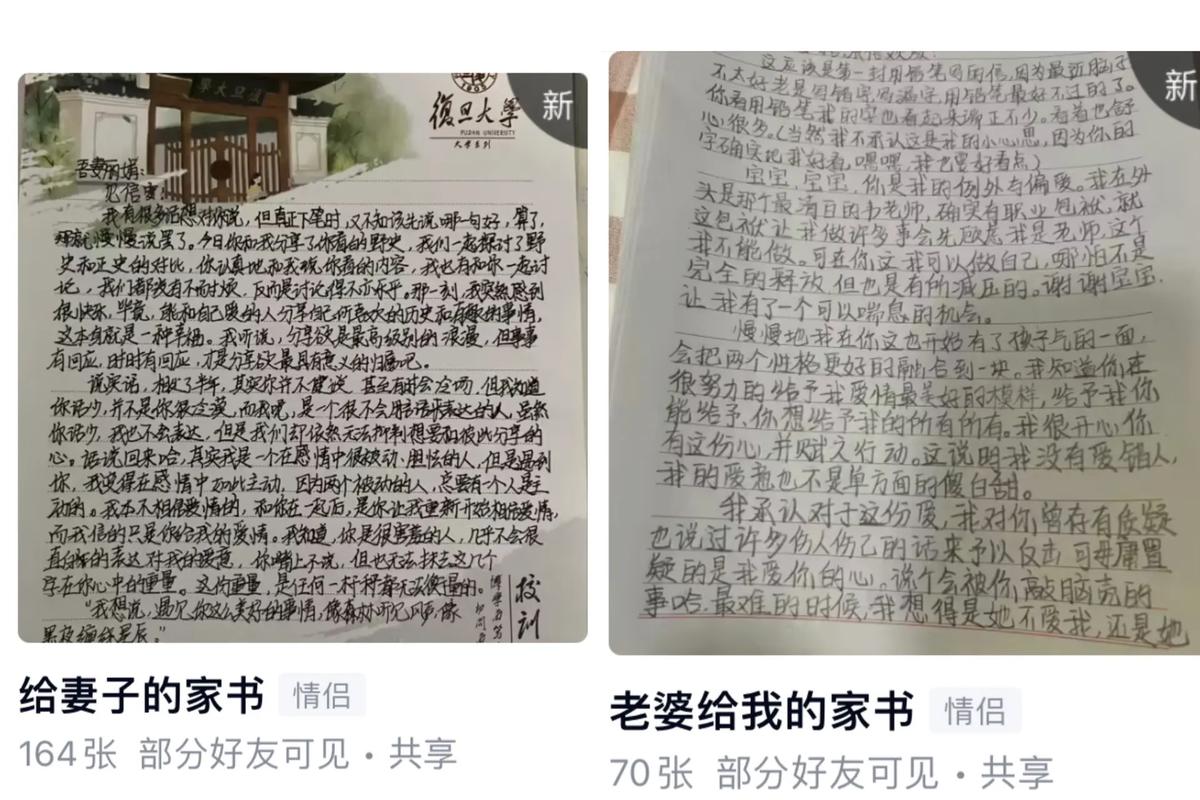 學大旦復
1905
復旦大學
FUDAN UNIVERSITY
大学系列
新
吾妻丽娟:
见信安。
我有很多话想对你说，但真正下笔时，又不知该先说哪一句好，算了，
那就慢慢说罢了。今日你和我分享了你看的野史，我们一起探讨了野
史和正史的对比，你认真地和我说你看的内容，我也有和你一起讨
论，我们都没有不耐烦，反而是讨论得不亦乐乎。那一刻，我突然感到
很快乐，毕竟，能和自己爱的人分享自己所喜欢的历史和有趣的事情，
这本身就是一种幸福。我听说，分享欲是最高级别的浪漫，但事事
有回应，时时有回应，才是分享欲最具有意义的归属吧。
说实话，相处了半年，其实你并不健谈，甚至有时会冷场，但我知道
你话少，并不是你很冷漠，而我呢，是一个很不会用话语表达的人，虽然
你话少，我也不会表达，但是我们却依然无法抑制想要和彼此分享的
心。话说回来哈，其实我是一个在感情中很被动、胆怯的人，但是遇到
你，我变得在感情中如此主动，因为两个被动的人，总要有一个人是主
动的。我本不相信爱情的，和你在一起后，是你让我重新开始相信爱情，
而我信的只是你给我的爱情。我知道，你是很害羞的人，几乎不会很
直白的表达对我的爱意，你嘴上不说，但也无法抹去这几个
字在你心中的重量。这份重量，是任何一杆秤都无法衡量的。
“我想说，遇见你这么美好的事情，像森林听见风声，像
黑夜缠绵星辰。”
校训
给妻子的家书 情侣
164张 部分好友可见・共享
这应该是第一封用铅笔写的信，因为最近脑子
不太好老是写错字写漏字，用铅笔最好不过的了。
你看用铅笔我的字也看起来端正不少。看着也舒
心很多。(当然我不承认这是我的小心思，因为你的
字确实比我好看，嘿嘿，我也要好看点)
宝宝，宝宝，你是我的例外与偏爱。我在外
头是那个最清白的书老师，确实有职业包袱，就
这包袱让我做许多事会先顾忌我是老师，这个
我不能做。可在你这我可以做自己，哪怕不是
完全的释放，但也是有所减压的。谢谢宝宝，
让我有了一个可以喘息的机会。
慢慢地我在你这也开始有了孩子气的一面，
会把两个性格更好的融合到一块。我知道你在
很努力的给予我爱情最美好的模样，给予我你
能给予、你想给予我的所有所有。我很开心，你
有这份心，并赋之行动。这说明我没有爱错人，
我的爱意也不是单方面的傻白甜。
我承认对于这份爱，我对你曾存有质疑
也说过许多伤人伤己的话来予以反击，可毋庸置
疑的是我爱你的心。说个会被你敲脑壳的
事哈，最难的时候，我想得是她不爱我，还是她
新
老婆给我的家书 情侣
70张 部分好友可见・共享